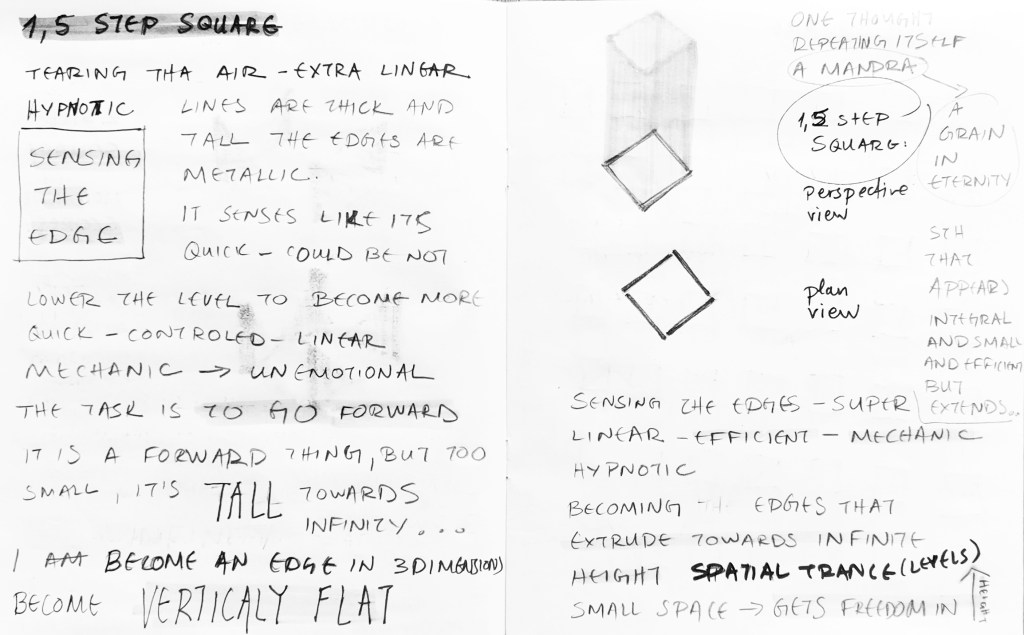 1,5 STEP SQUARE
TEARING THA AIR - EXTRA LINEAR
HYPNOTIC
SENSING
THE
EDGE
LINES ARE THICK AND
TALL THE EDGES ARE
METALLIC.
IT SENSES LIKE ITS
QUICK - COULD BE NOT
LOWER THE LEVEL TO BECOME MORE
QUICK - CONTROLED - LINEAR
MECHANIC → UNEMOTIONAL
THE TASK IS TO GO FORWARD
IT IS A FORWARD THING, BUT TOO
SMALL, IT'S TALL TOWARDS
INFINITY...
I AM BECOME AN EDGE IN 3DIMENSION)
BECOME VERTICALY FLAT
ONE THOUGHT
REPEATING ITSELF
A MANDRA
1,5 STEP
SQUARE:
A
GRAIN
IN
ETERNITY
perspective
view
plan
view
STH
THAT
APPEARS
INTEGRAL
AND SMALL
AND EFFICIENT
BUT
EXTENDS...
SENSING THE EDGES - SUPER
LINEAR - EFFICIENT - MECHANIC
HYPNOTIC
BECOMING THE EDGES THAT
EXTRUDE TOWARDS INFINITE
HEIGHT SPATIAL TRANCE (LEVELS)
SMALL SPACE → GETS FREEDOM IN
HEIGHT